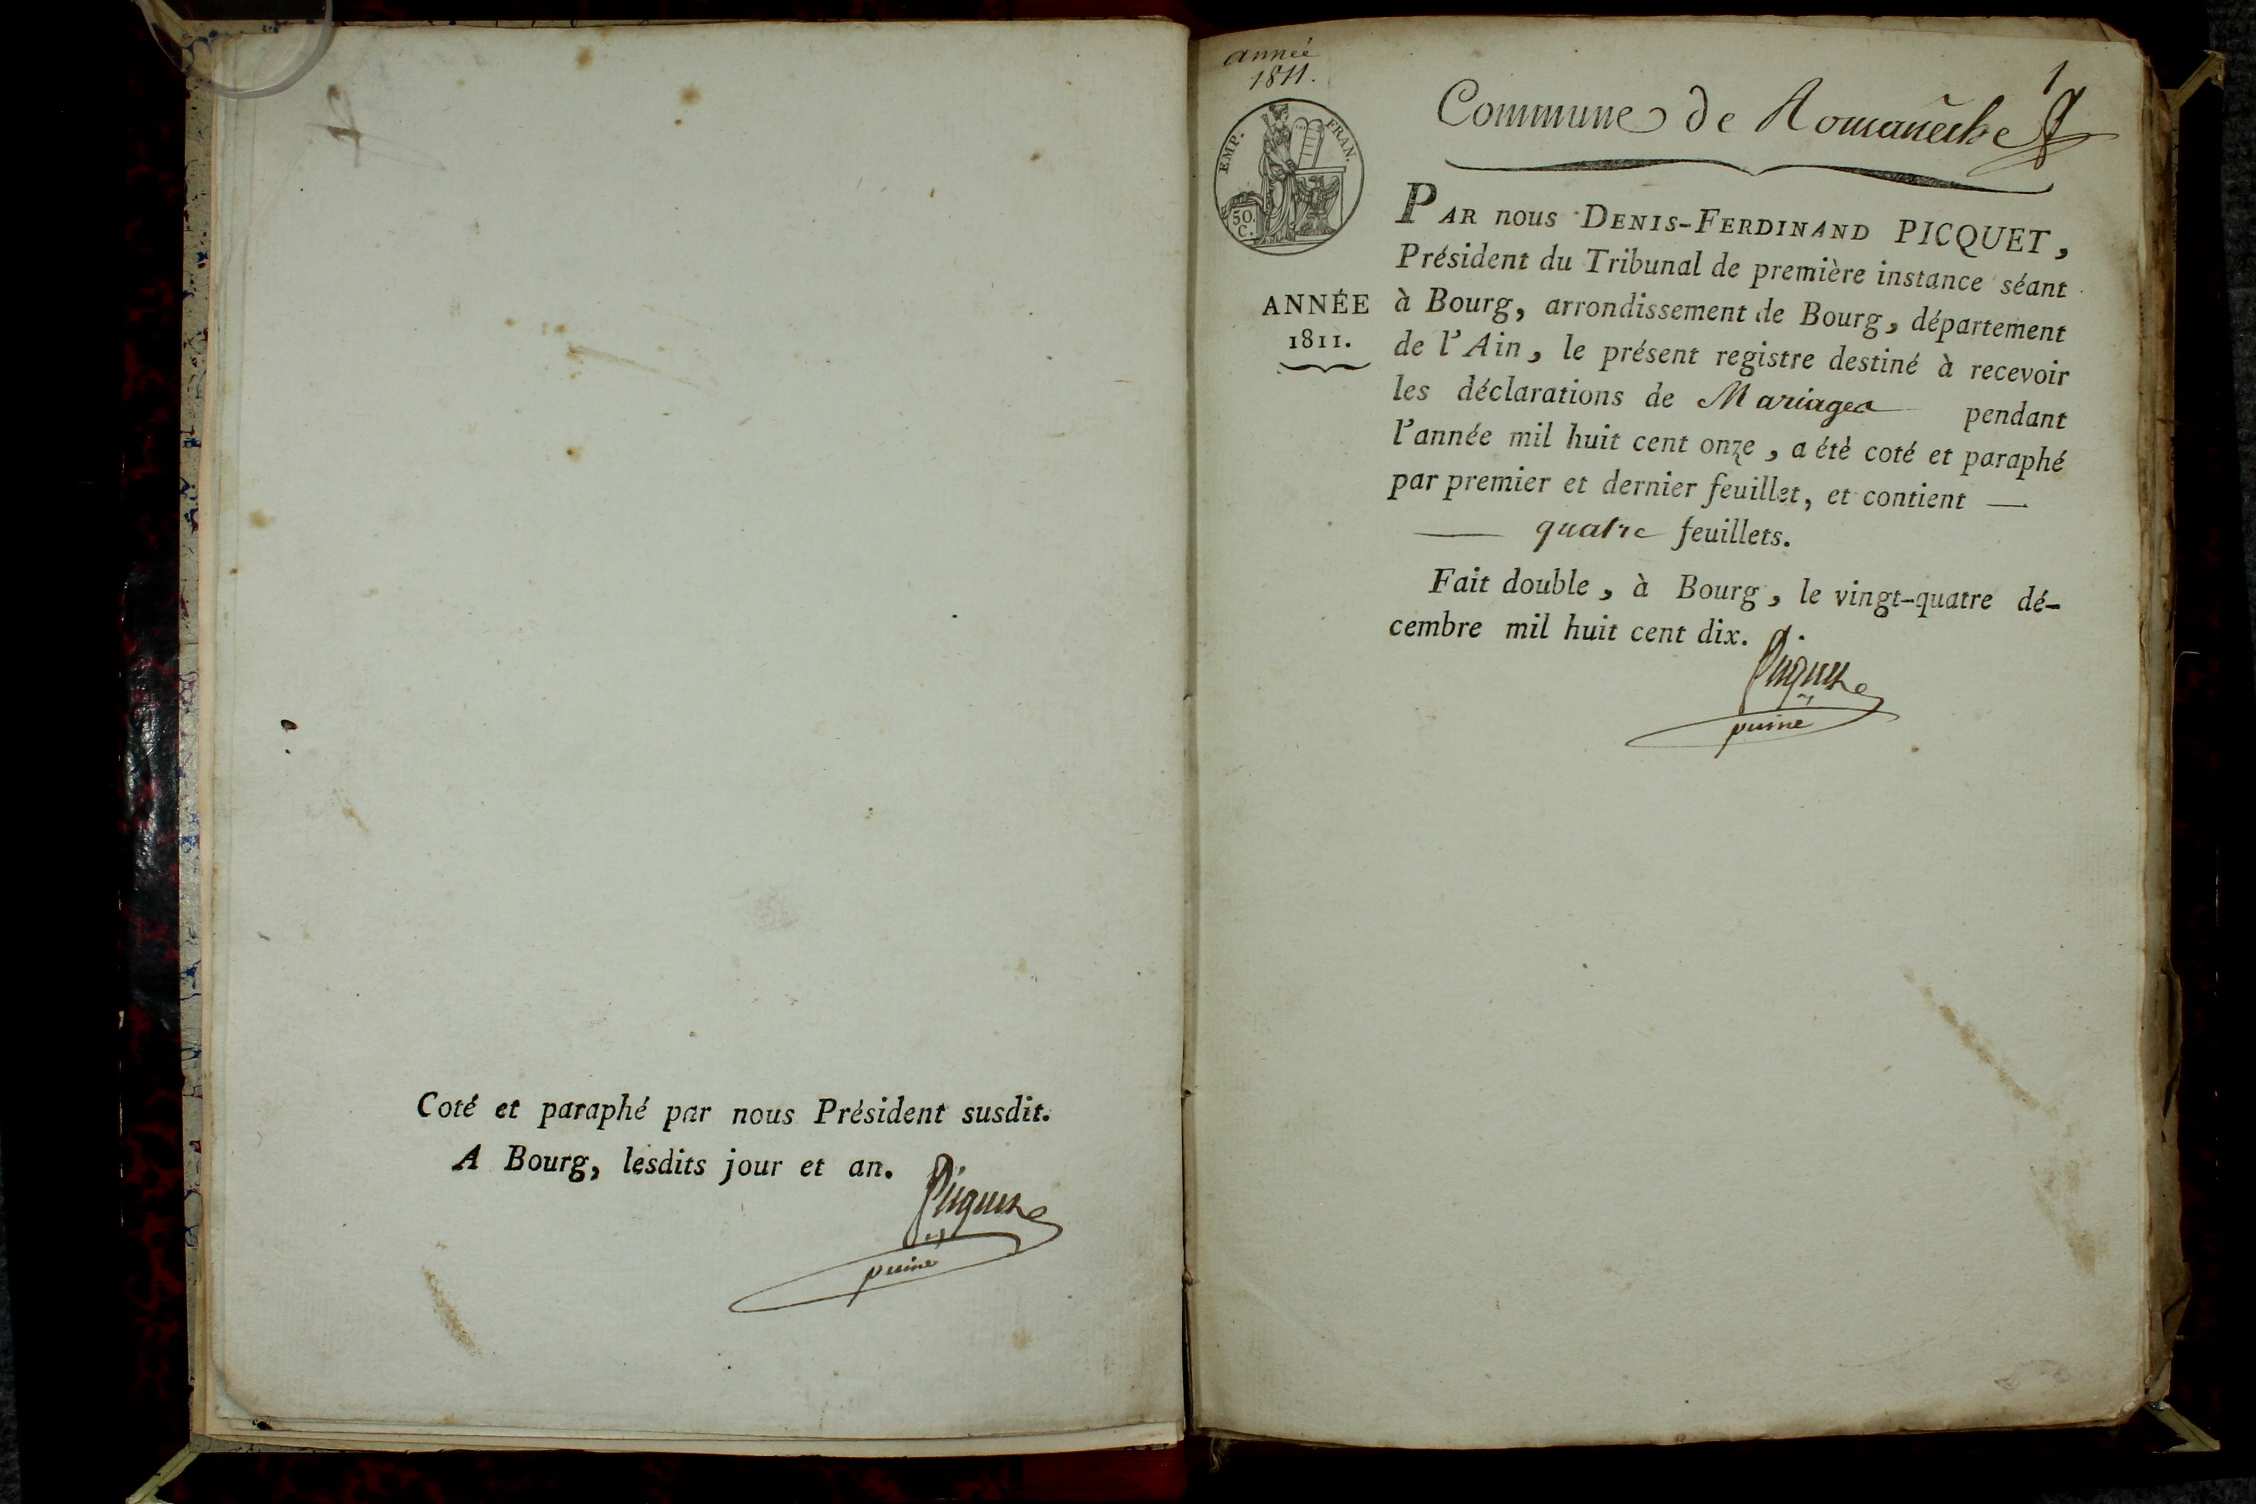 Coté et paraphé par nous Président susdit.
A Bourg, lesdits jour et an.
Picquet
puiné
année
1811.
1
Commune de Romanêche
EMP. FRAN.
50.
C.
ANNÉE
1811.
PAR nous DENIS-FERDINAND PICQUET,
Président du Tribunal de première instance séant
à Bourg, arrondissement de Bourg, département
de l'Ain, le présent registre destiné à recevoir
les déclarations de Mariages pendant
l'année mil huit cent onze, a été coté et paraphé
par premier et dernier feuillet, et contient —
— quatre feuillets.
Fait double, à Bourg, le vingt-quatre dé-
cembre mil huit cent dix.
Picquet
puiné